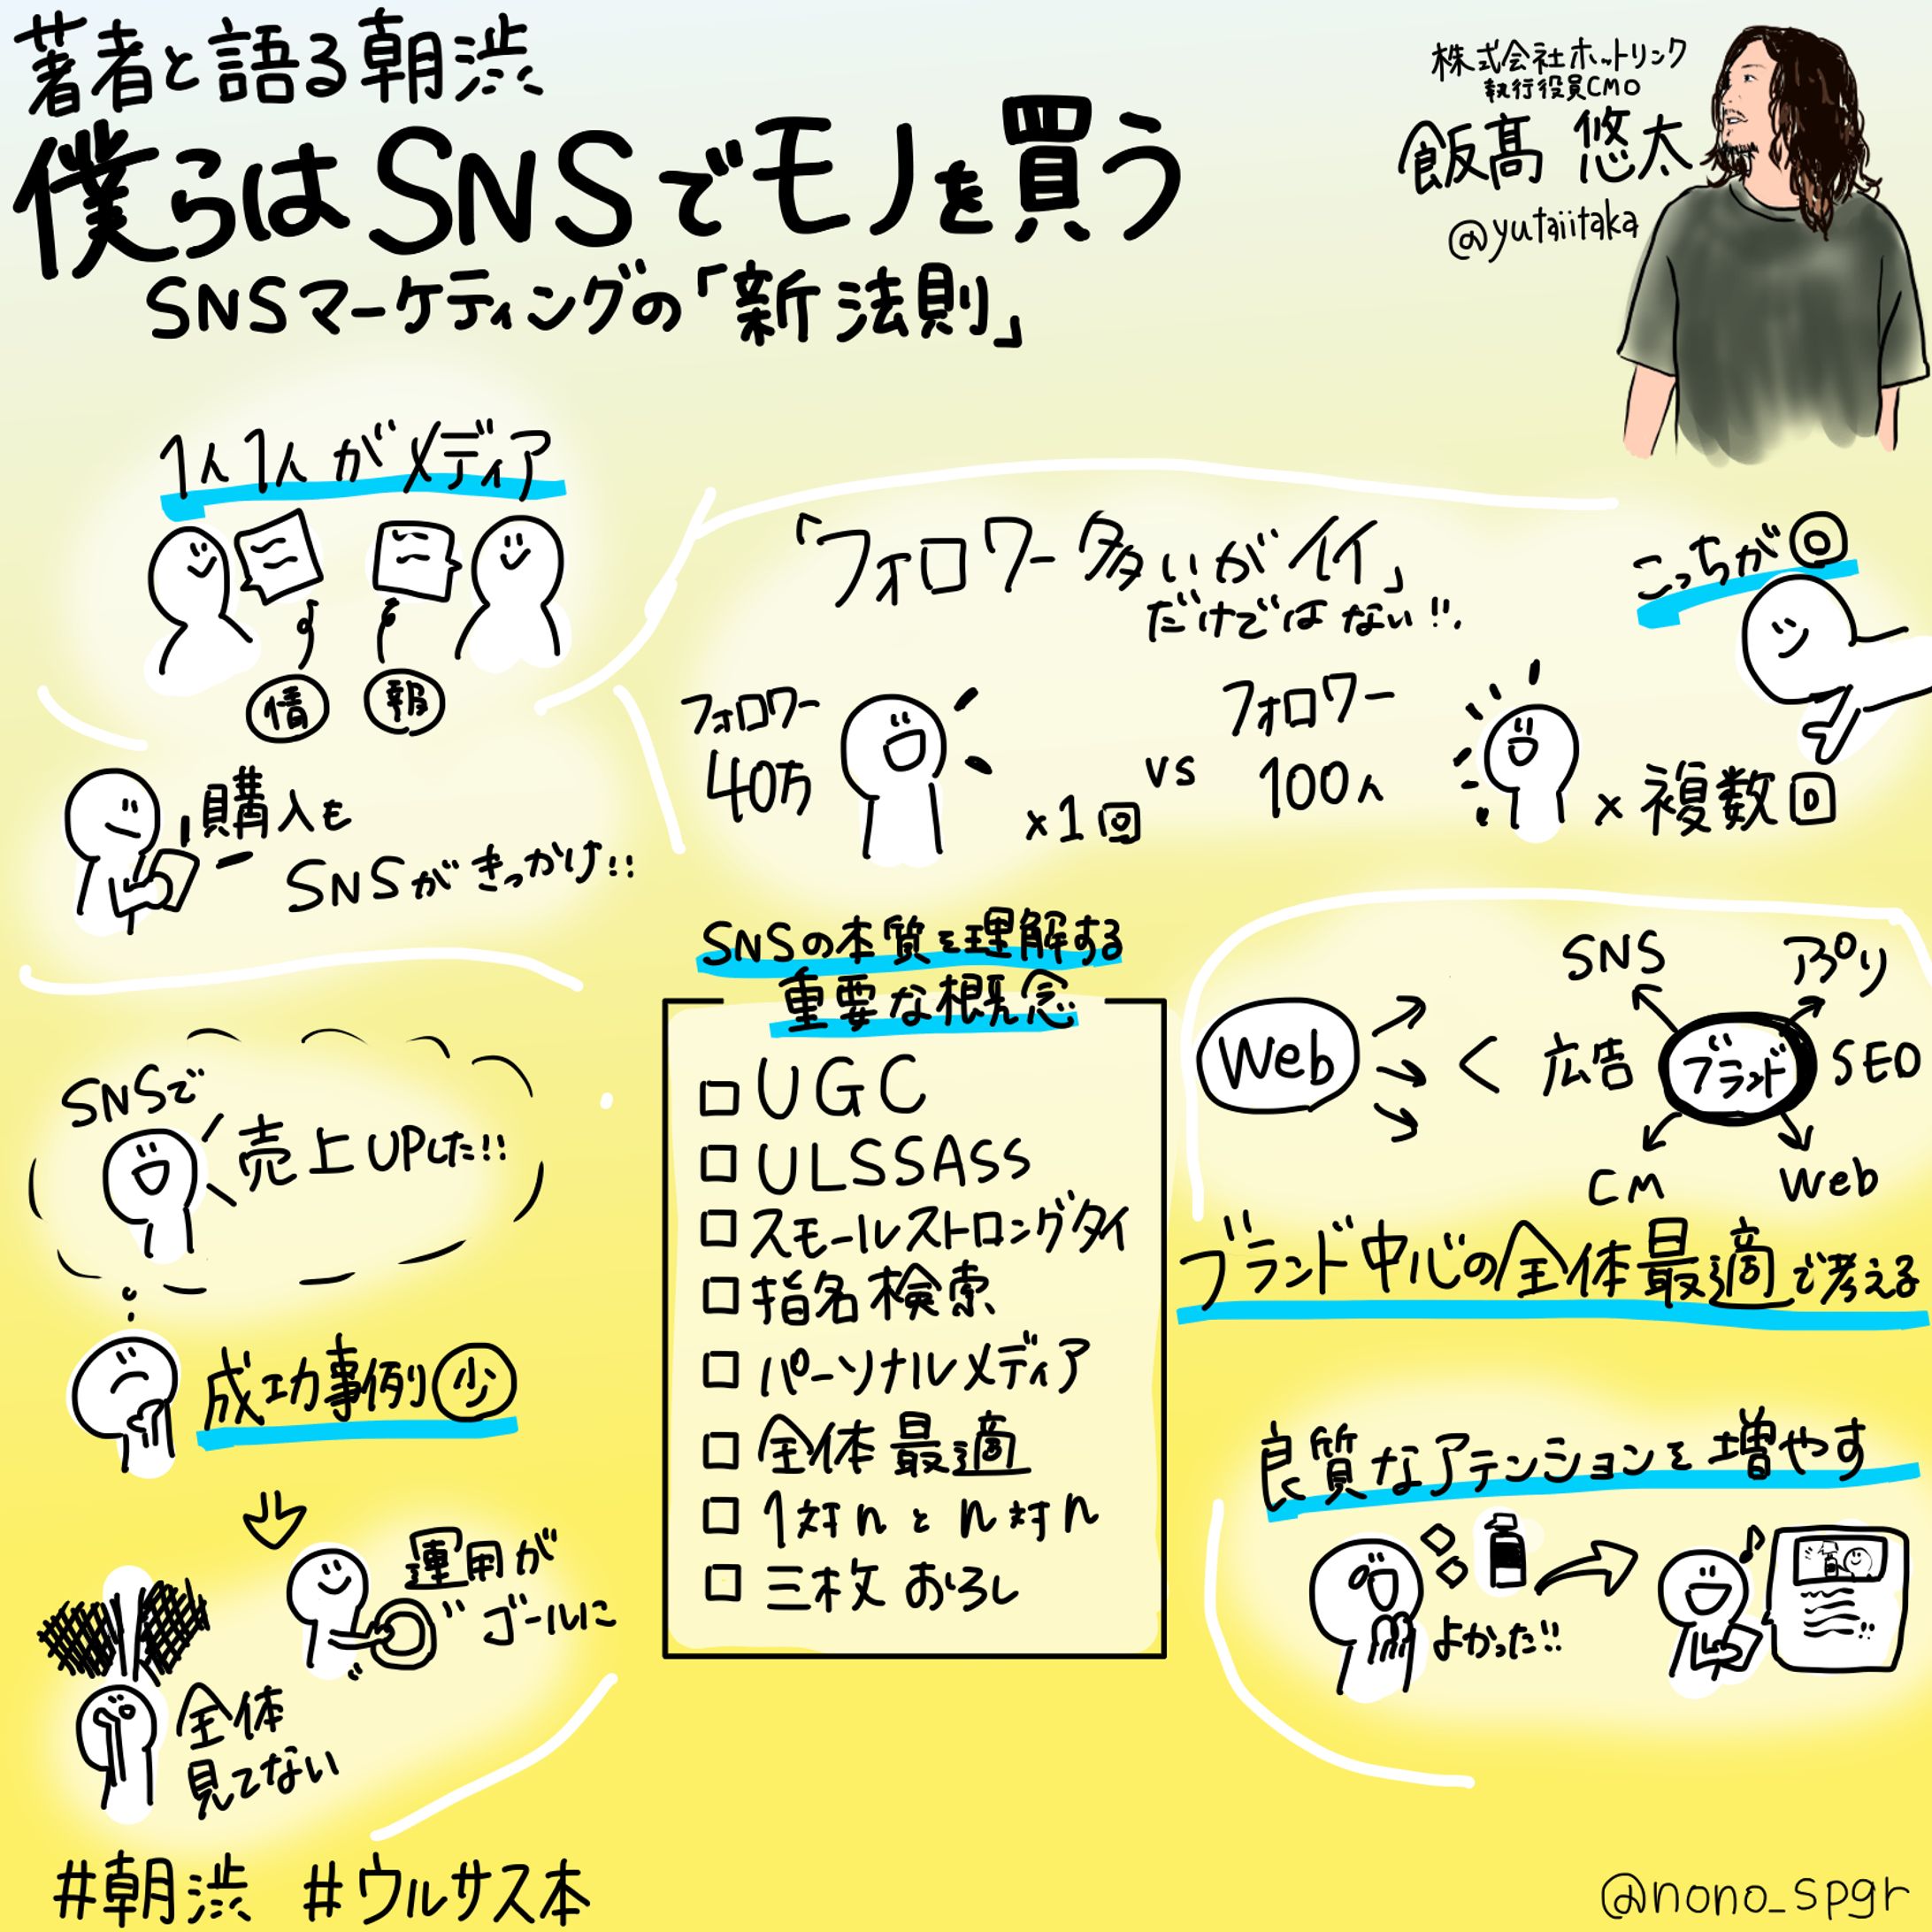 著者と語る朝渋
僕らはSNSでモノを買う
SNSマーケティングの「新法則」
株式会社ホットリンク
執行役員CMO
飯髙 悠太
@yutaiitaka
1人1人がメディア
情 報
購入も
SNSがきっかけ!!
「フォロワー多いがイイ」
だけではない!!
こっちが◎
フォロワー
40万
×1回
vs
フォロワー
100人
×複数回
SNSの本質を理解する
重要な概念
□UGC
□ULSSASS
□スモールストロングタイ
□指名検索
□パーソナルメディア
□全体最適
□1対nとn対n
□三枚おろし
Web
<
SNS
アプリ
広告
ブランド
SEO
CM
Web
ブランド中心の全体最適で考える
SNSで
売上UPした!!
成功事例少
運用が
ゴールに
全体
見てない
良質なアテンションを増やす
よかった!!
#朝渋 #ウルサス本
@nono_spgr